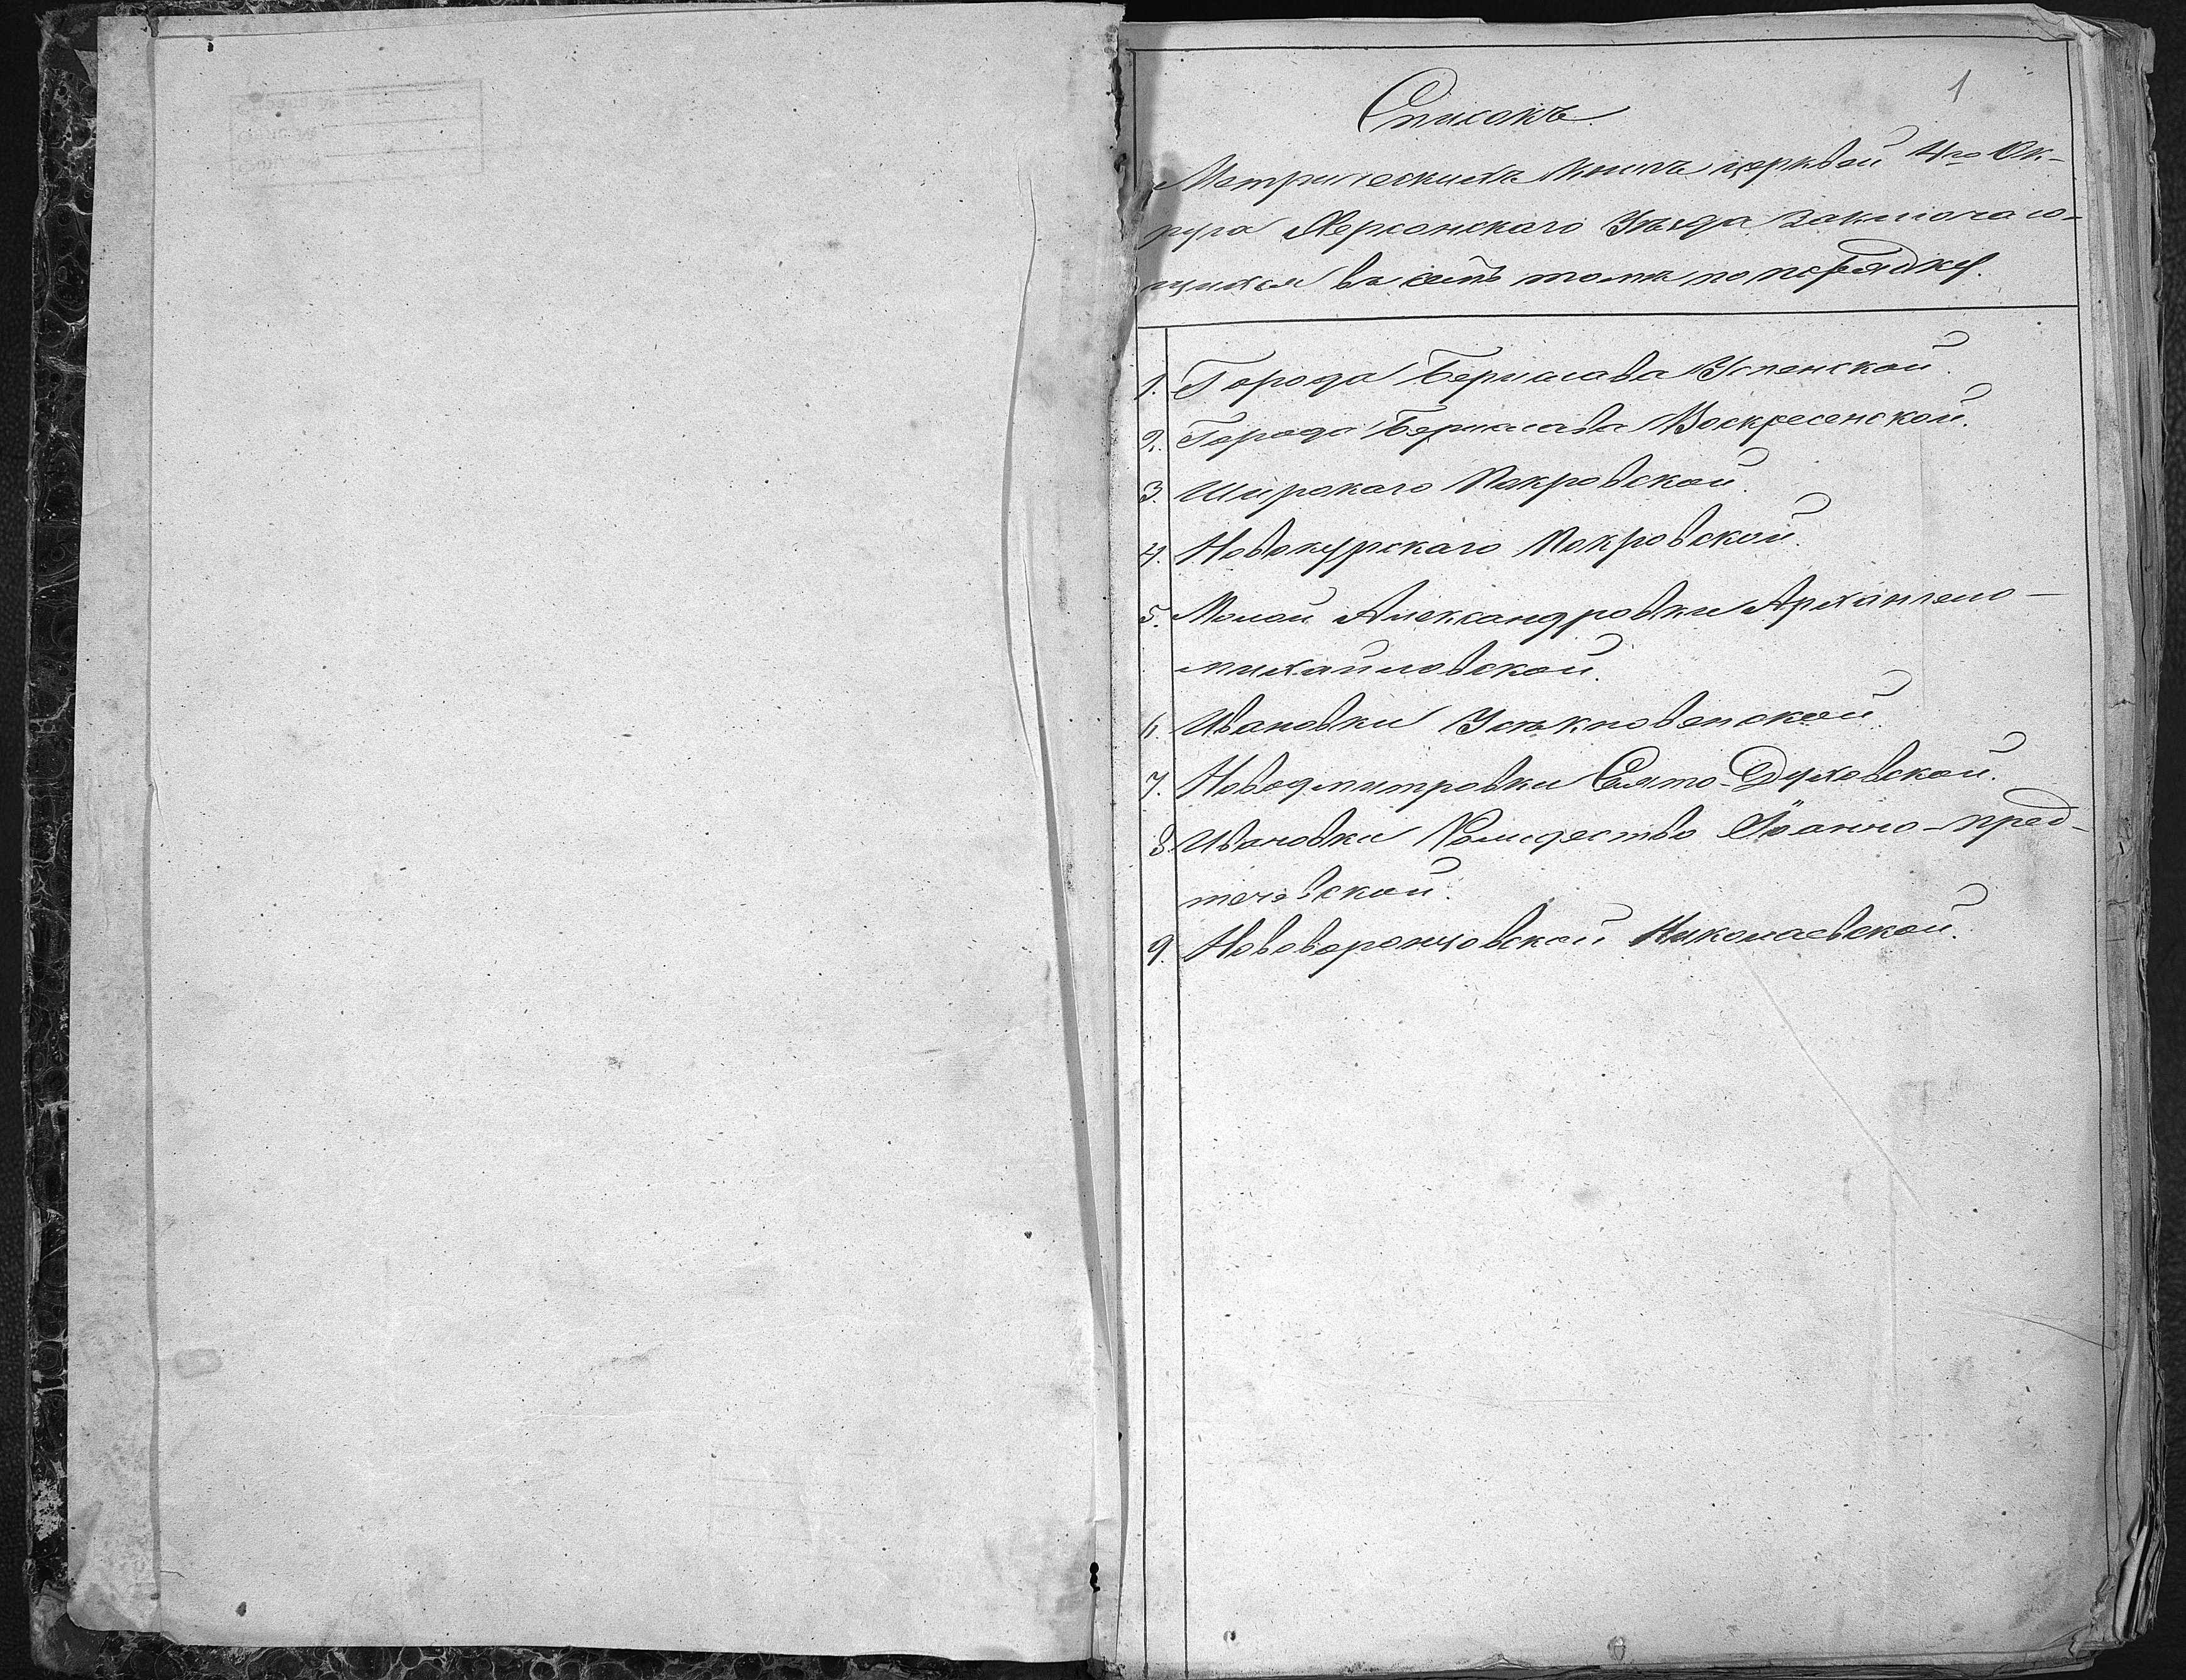 1
Списокъ.
Метрическихъ Книгъ церквей 4го Ок-
руга Херсонскаго Уѣзда заключаю-
щихся въ семъ томѣ по порядку.
1. Города Берислава Успенской.
2. Города Берислава Воскресенской.
3. Широкаго Покровской.
4. Новокурскаго Покровской.
5. Малой Александровки Архангело-
михайловской.
6. Ивановки Усѣкновенской.
7. Новодмитровки Свято-Духовской.
8. Ивановки Рождество Іоанно-пред-
течевской.
9. Нововоронцовской Николаевской.